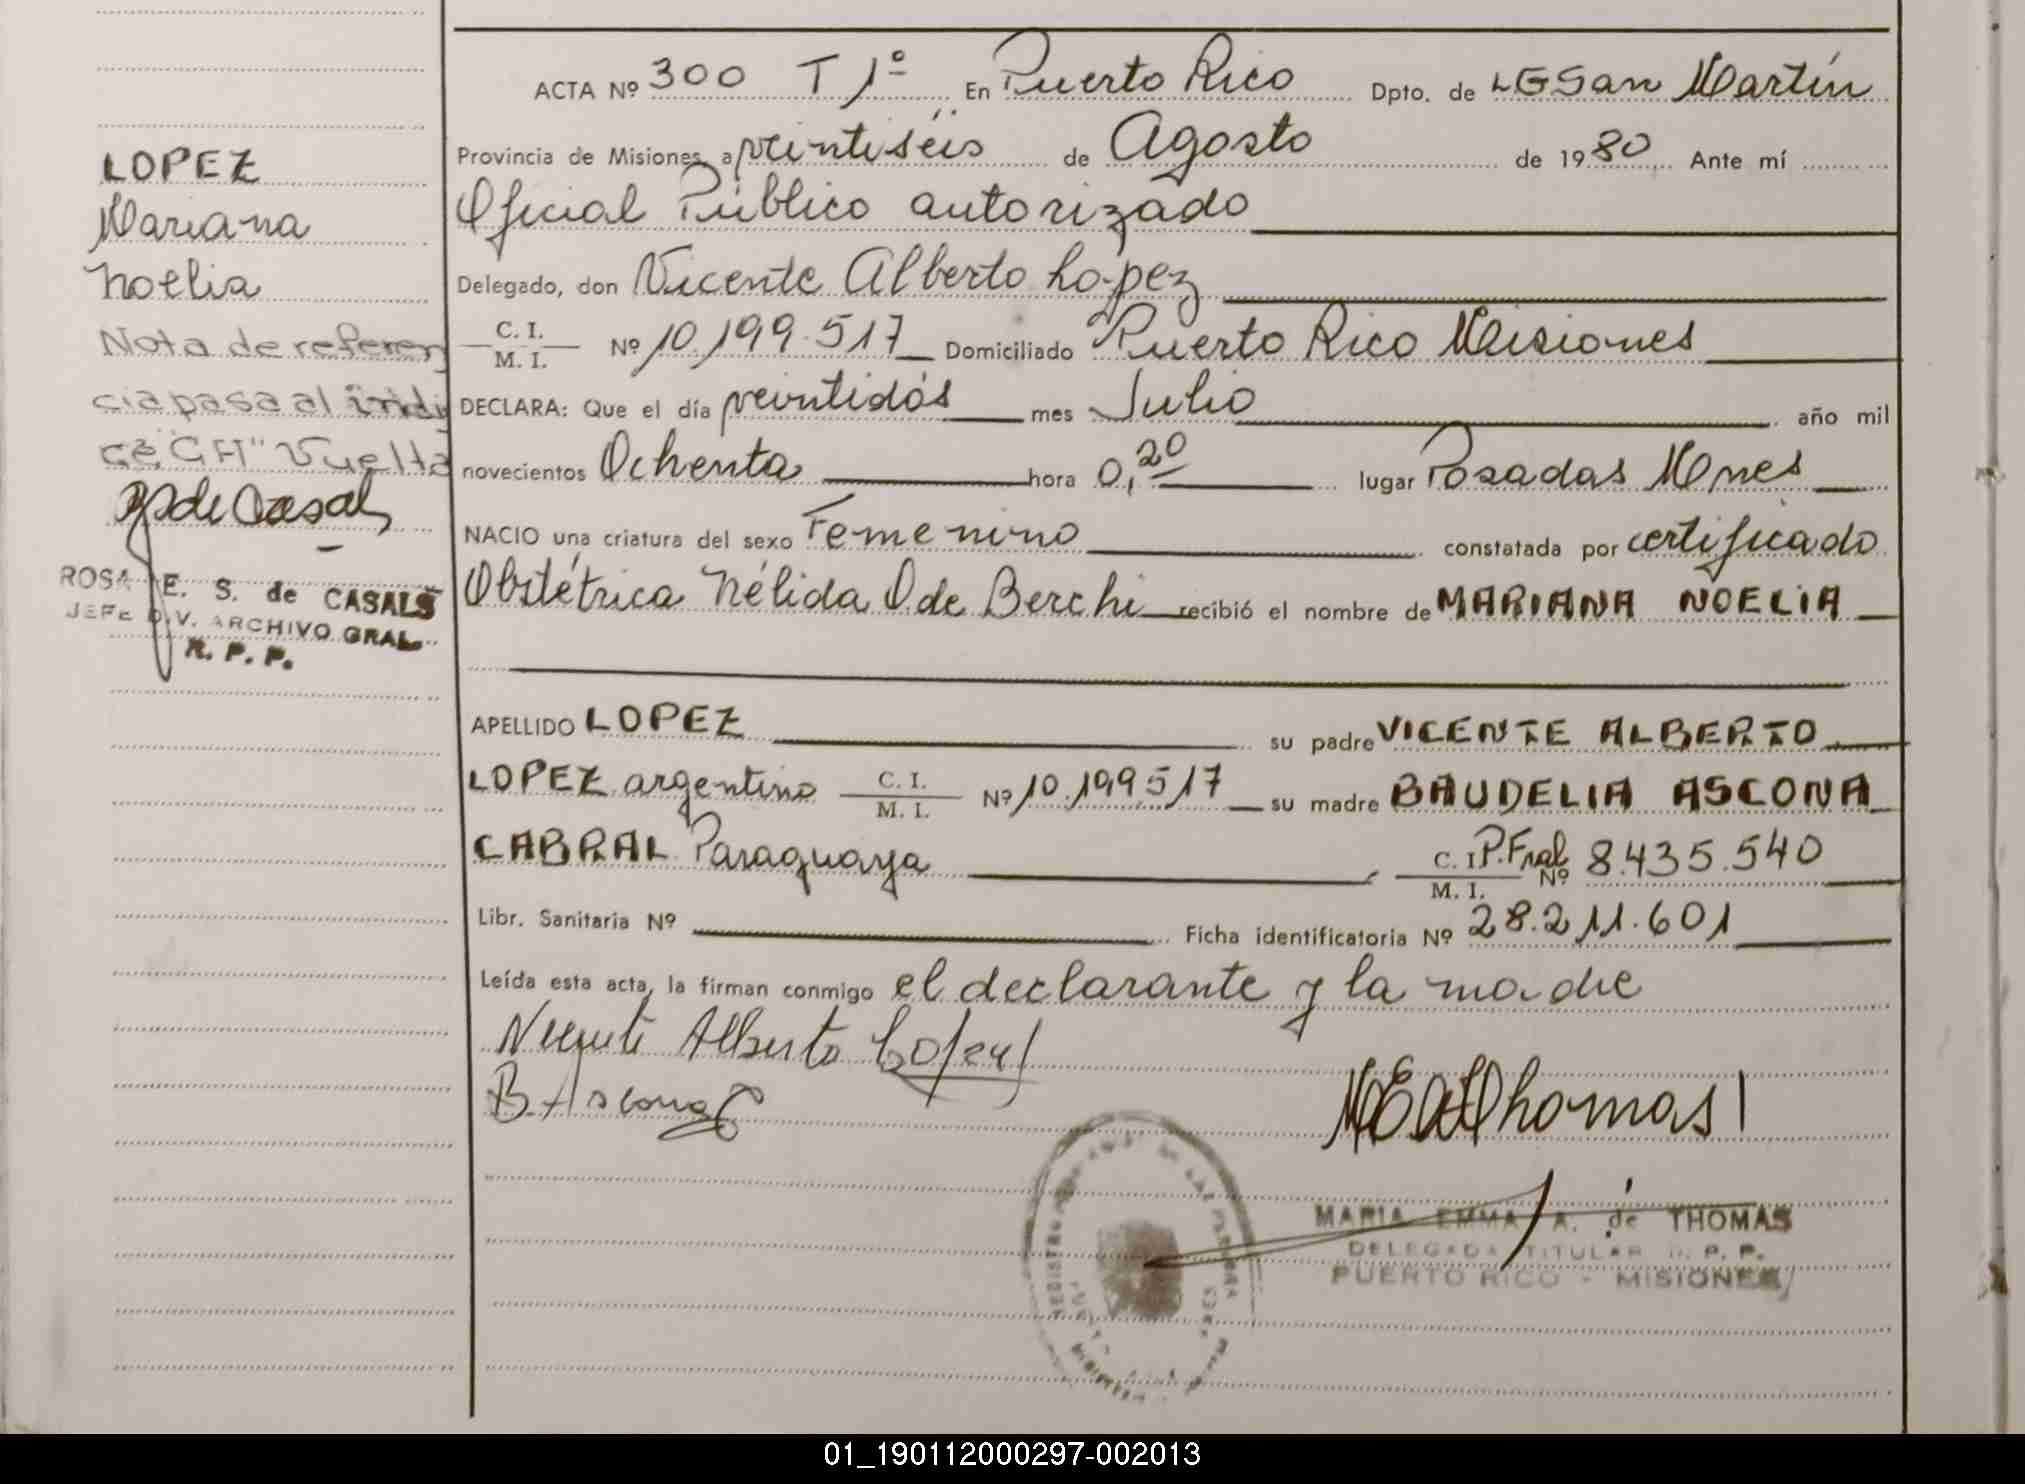 ACTA Nº 300 T 1º En Puerto Rico Dpto. de LGSan Martín
Provincia de Misiones, a veintiséis de Agosto de 1980 Ante mí
Oficial Público autorizado
Delegado, don Vicente Alberto Lopez
C. I. M. I. Nº 10.199.517 Domiciliado Puerto Rico Misiones
DECLARA: Que el día veintidós mes Julio año mil
novecientos Ochenta hora 0,20 lugar Posadas Mnes
NACIO una criatura del sexo Femenino constatada por certificado
Obstétrica Nélida O de Berchi recibió el nombre de MARIANA NOELIA
APELLIDO LOPEZ su padre VICENTE ALBERTO
LOPEZ argentino C. I. M. I. Nº 10.199.517 su madre BAUDELIA ASCONA
CABRAL Paraguaya C. I. P.Fral M. I. Nº 8.435.540
Libr. Sanitaria Nº Ficha identificatoria Nº 28.211.601
Leída esta acta, la firman conmigo el declarante y la madre
Vicente Alberto Lopez
B. Ascona
Thomas
MARIA EMMA A. de THOMAS
DELEGADA TITULAR R. P. P.
PUERTO RICO - MISIONES
LOPEZ
Mariana
Noelia
Nota de referen
cia pasa al indi
ce "CH" Vuelta
de Casals
ROSA E. S. de CASALS
JEFE DIV. ARCHIVO GRAL.
R. P. P.
01_190112000297-002013